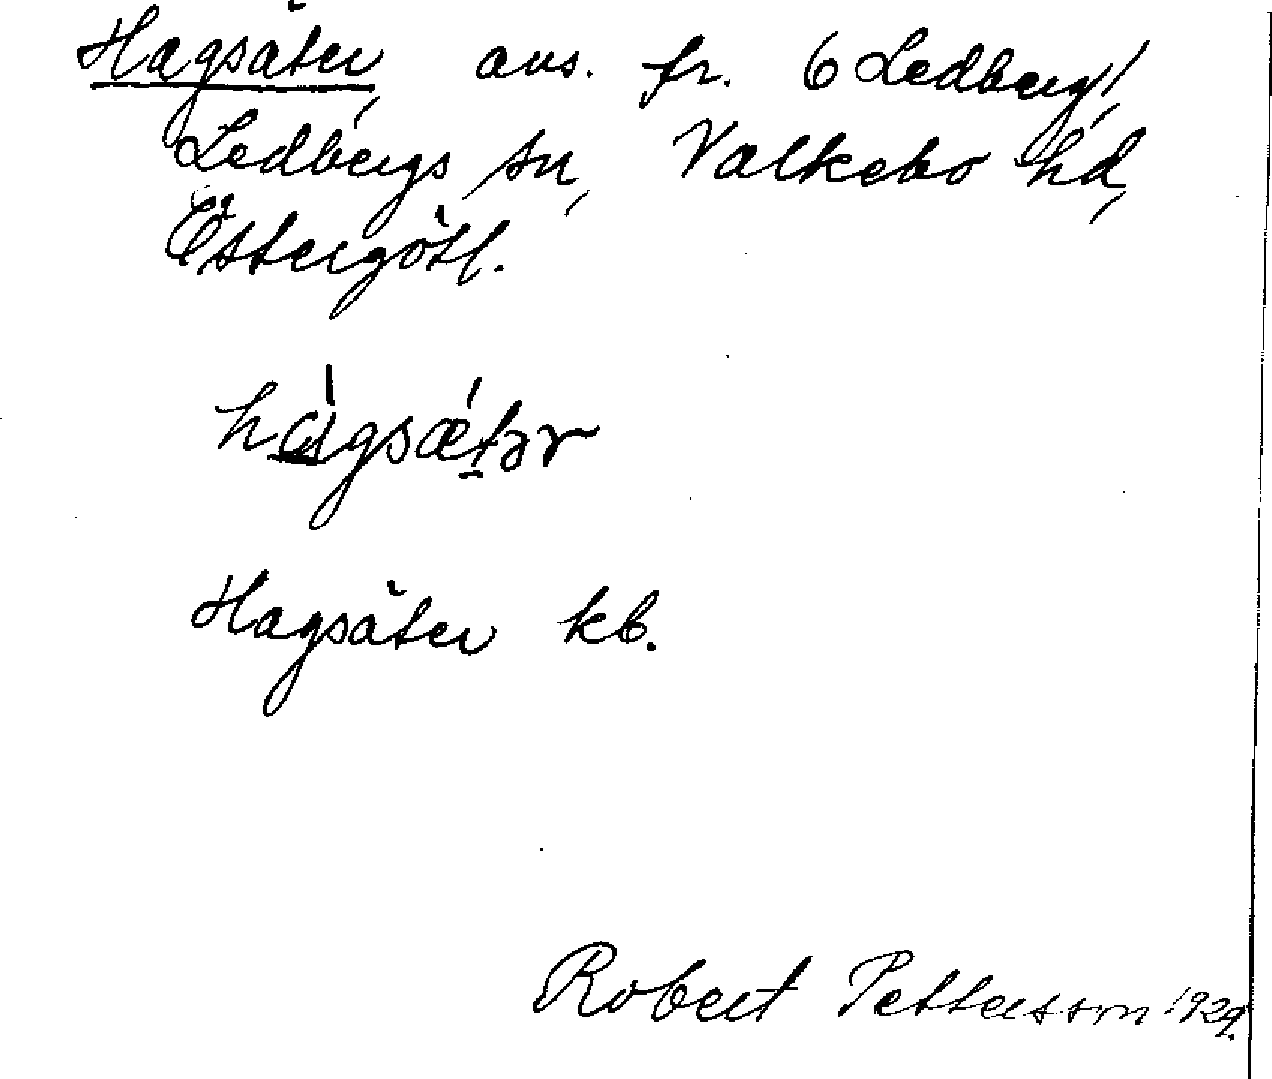 Hagsäter avs. fr. 6 Ledberg,
Ledbergs sn, Valkebo hd,
Östergötl.
hàgsǽtər
Hagsäter kb.
Robert Pettersson 1929.